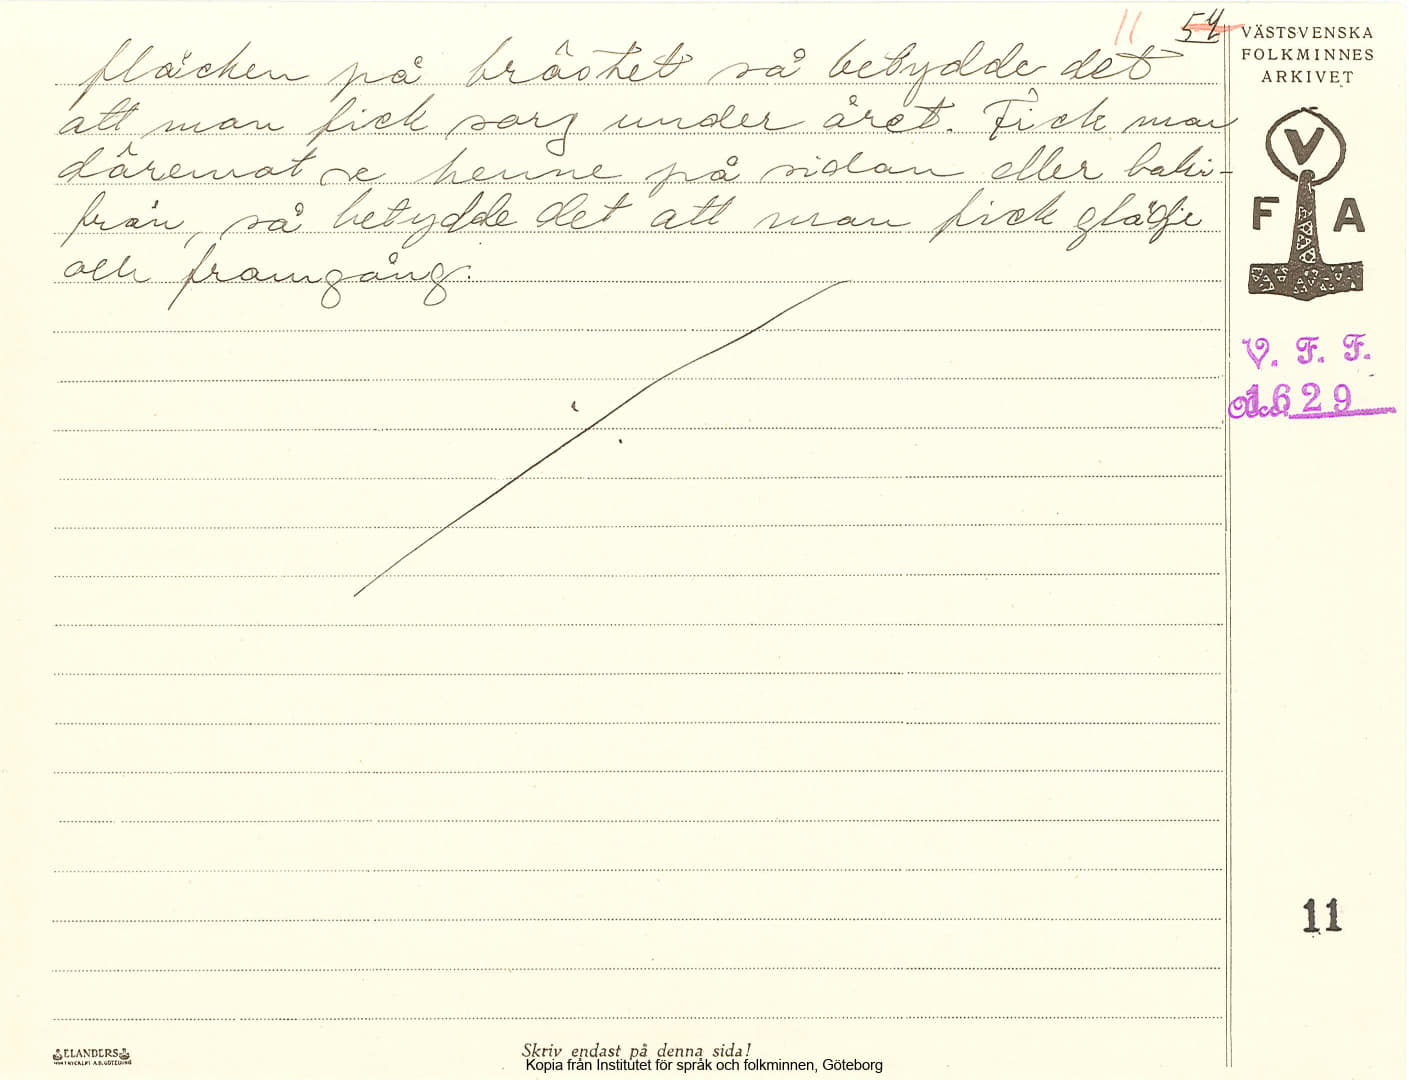 11 54
fläcken på bröstet så betydde det
att man fick sorg under året. Fick man
däremot se henne på sidan eller baki-
från, så betydde det att man fick glädje
och framgång.
VÄSTSVENSKA
FOLKMINNES
ARKIVET
V
F A
V. F. F.
Acc. 1629
11
ELANDERS
Skriv endast på denna sida!
Kopia från Institutet för språk och folkminnen, Göteborg